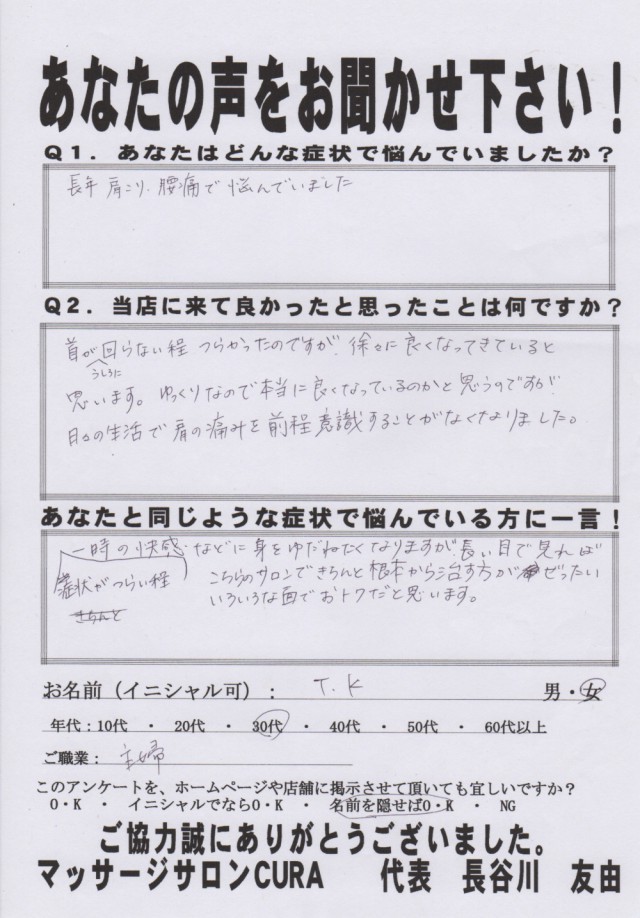 あなたの声をお聞かせ下さい！
Q1．あなたはどんな症状で悩んでいましたか？
長年 肩こり、腰痛で悩んでいました
Q2．当店に来て良かったと思ったことは何ですか？
首が回らない程 つらかったのですが、徐々に良くなってきていると
うしろに
思います。ゆっくりなので本当に良くなっているのかと思うのですが
日々の生活で肩の痛みを前程意識することがなくなりました。
あなたと同じような症状で悩んでいる方に一言！
一時の快感などに身をゆだねたくなりますが、長い目で見れば
症状がつらい程 こちらのサロンできちんと根本から治す方がぜったい
きちんと いろいろな面でおトクだと思います。
お名前（イニシャル可）： T.K 男・女
年代：10代 ・ 20代 ・ 30代 ・ 40代 ・ 50代 ・ 60代以上
ご職業： 主婦
このアンケートを、ホームページや店舗に掲示させて頂いても宜しいですか？
O・K ・ イニシャルでならO・K ・ 名前を隠せばO・K ・ NG
ご協力誠にありがとうございました。
マッサージサロンCURA 代表 長谷川 友由